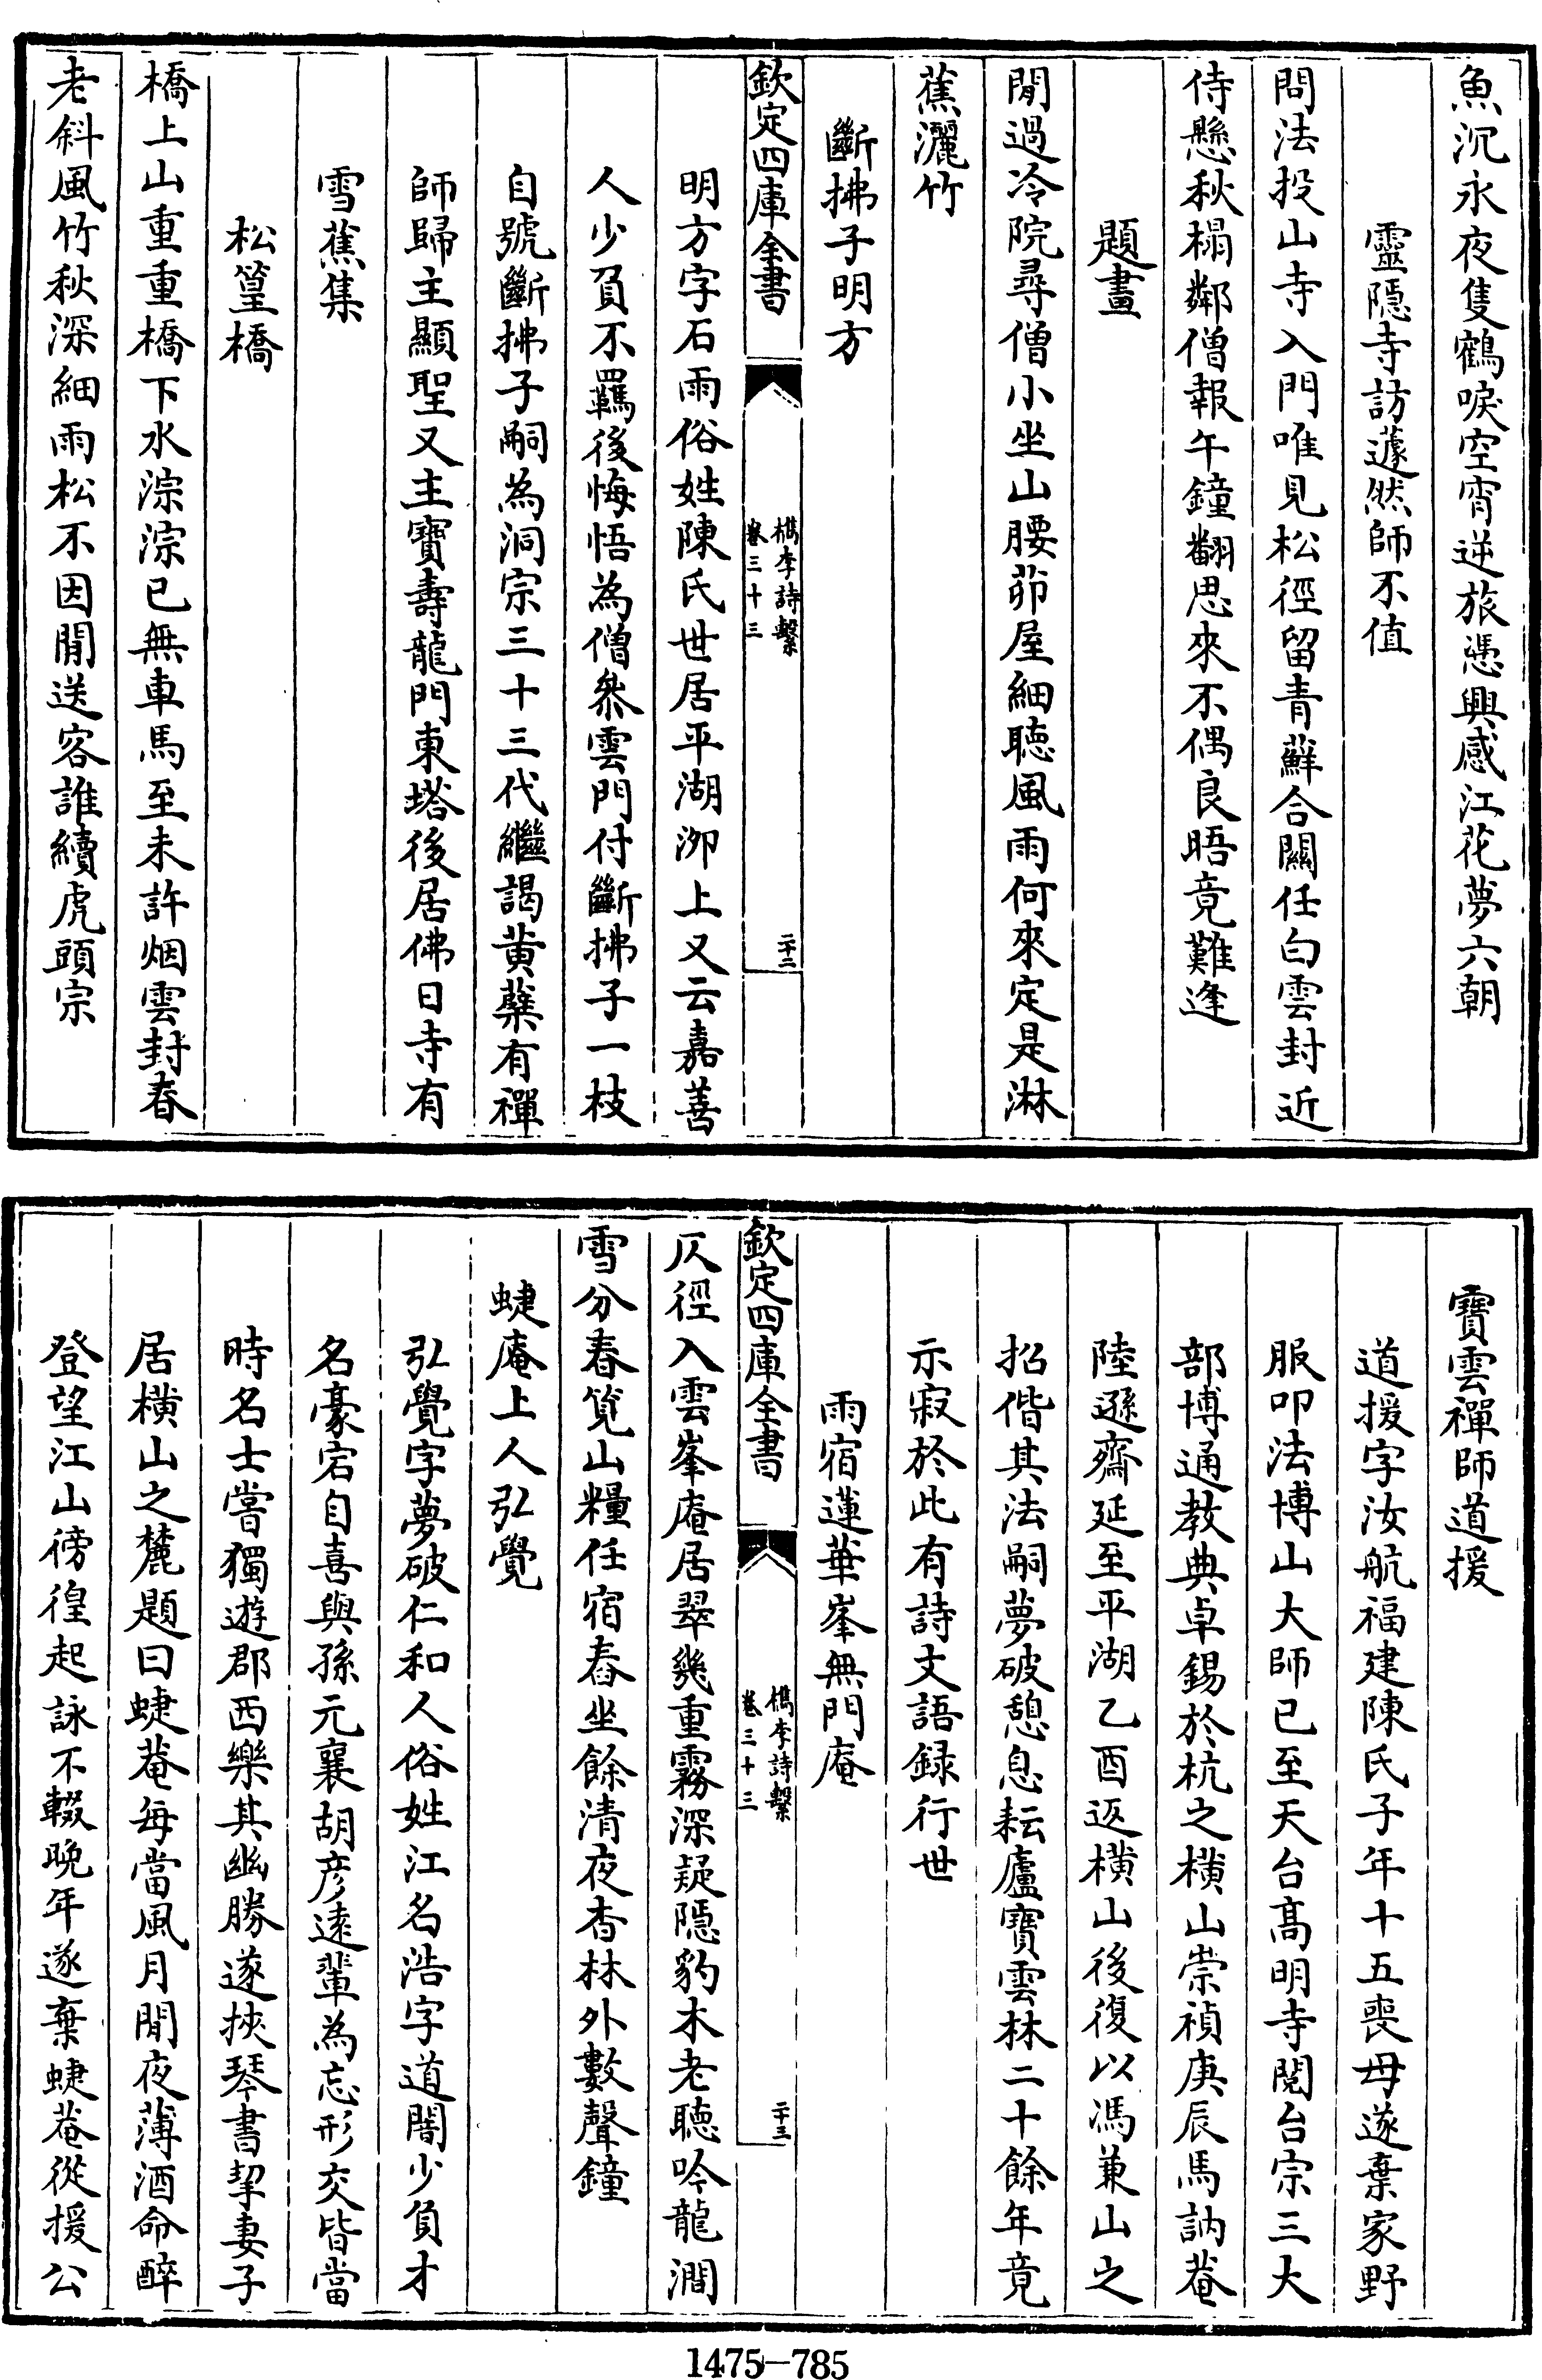 魚沉永夜隻鶴唳空宵逆旅憑興感江花夢六朝
靈隱寺訪蘧然師不值
問法投山寺入門唯見松徑留青蘚合關任白雲封近
侍懸秋榻鄰僧報午鐘翻思來不偶良晤竟難逢
題畫
閒過冷院尋僧小坐山腰茆屋細聴風雨何來定是淋
蕉灑竹
斷拂子明方
欽定四庫全書
檇李詩繫
卷三十三
二十二
明方字石雨俗姓陳氏世居平湖泖上又云嘉善
人少負不羈後悔悟為僧叅雲門付斷拂子一枝
自號斷拂子嗣為洞宗三十三代繼謁黃蘗有禪
師歸主顯聖又主寶壽龍門東塔後居佛日寺有
雪蕉集
松篁橋
橋上山重重橋下水淙淙已無車馬至未許烟雲封春
老斜風竹秋深細雨松不因閒送客誰續虎頭宗
寶雲禪師道援
道援字汝航福建陳氏子年十五喪母遂棄家野
服叩法博山大師已至天台高明寺閱台宗三大
部博通教典卓錫於杭之横山崇禎庚辰馬訥菴
陸遜齋延至平湖乙酉返横山後復以馮兼山之
招偕其法嗣夢破憩息耘廬寶雲林二十餘年竟
示寂於此有詩文語録行世
雨宿蓮華峯無門庵
欽定四庫全書
檇李詩繫
卷三十三
二十三
仄徑入雲峯庵居翠幾重霧深疑隱豹木老聴吟龍澗
雪分春筧山糧任宿舂坐餘清夜杳林外數聲鐘
蜨庵上人弘覺
弘覺字夢破仁和人俗姓江名浩字道闇少負才
名豪宕自喜與孫元襄胡彦遠輩為忘形交皆當
時名士嘗獨遊郡西樂其幽勝遂挾琴書挈妻子
居横山之麓題曰蜨菴每當風月閒夜薄酒命醉
登望江山徬徨起詠不輟晚年遂棄蜨菴從援公
1475—785